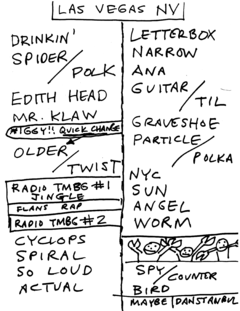 LAS VEGAS NV
DRINKIN'
SPIDER
POLK
EDITH HEAD
MR. KLAW
*IGGY!! QUICK CHANGE
OLDER
TWIST
RADIO TMBG #1
JINGLE
FLANS RAP
RADIO TMBG #2
CYCLOPS
SPIRAL
SO LOUD
ACTUAL
LETTERBOX
NARROW
ANA
GUITAR
TIL
GRAVESHOE
PARTICLE
POLKA
NYC
SUN
ANGEL
WORM
SPY
COUNTER
BIRD
MAYBE DANSTANBUL